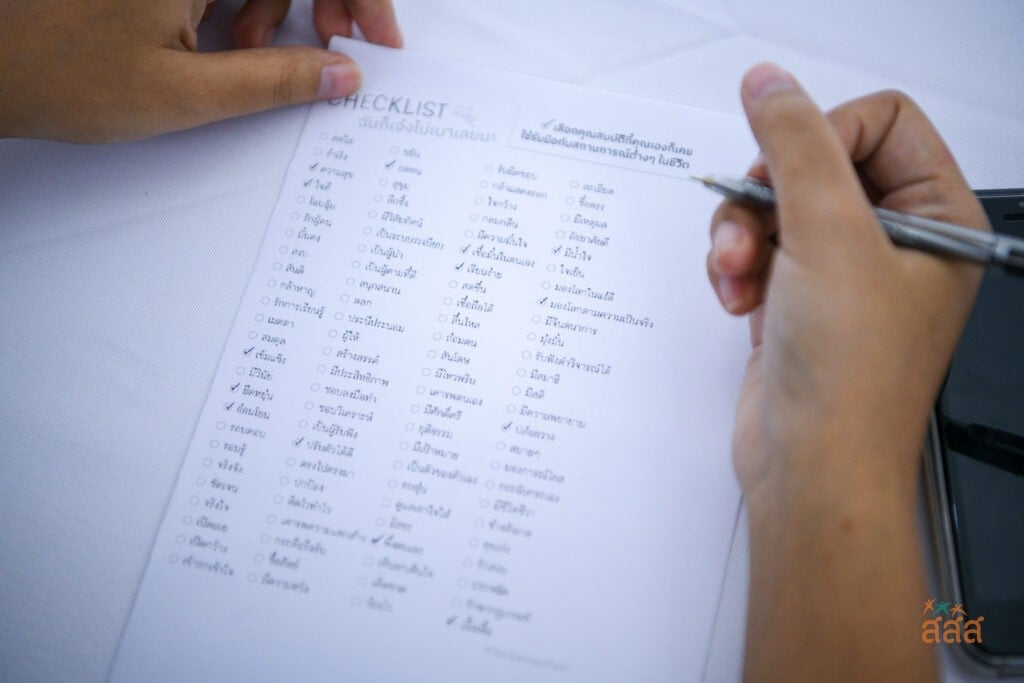 CHECKLIST
ฉันก็เจ๋งไม่เบาเลยนะ
เลือกคุณสมบัติที่คุณเองก็เคย
ใช้รับมือกับสถานการณ์ต่างๆ ในชีวิต
สดใส
ร่าเริง
ความสุข
ใจดี
โอบอุ้ม
รักผู้คน
มั่นคง
สงบ
สันติ
กล้าหาญ
รักการเรียนรู้
เมตตา
สมดุล
เข้มแข็ง
มีวินัย
ยืดหยุ่น
อ่อนโยน
รอบคอบ
รอบรู้
จริงจัง
ชัดเจน
จริงใจ
เปิดเผย
เปิดกว้าง
เข้าอกเข้าใจ
ขยัน
อดทน
สุขุม
ลึกซึ้ง
มีวิสัยทัศน์
เป็นระบบระเบียบ
เป็นผู้นำ
เป็นผู้ตามที่ดี
สนุกสนาน
ตลก
ประนีประนอม
ผู้ให้
สร้างสรรค์
มีประสิทธิภาพ
ชอบลงมือทำ
ชอบวิเคราะห์
เป็นผู้รับฟัง
ปรับตัวได้ดี
ตรงไปตรงมา
ปกป้อง
คิดไวทำไว
เคารพความแตกต่าง
กระตือรือร้น
ซื่อสัตย์
มีความหวัง
รับผิดชอบ
กล้าแสดงออก
ใจกว้าง
กลมกลืน
มีความมั่นใจ
เชื่อมั่นในตนเอง
เรียบง่าย
สดชื่น
เชื่อถือได้
ลื่นไหล
ถ่อมตน
สันโดษ
มีไหวพริบ
เคารพตนเอง
มีศักดิ์ศรี
ยุติธรรม
มีเป้าหมาย
เป็นตัวของตัวเอง
อบอุ่น
ดูแลเอาใจใส่
อิสระ
พึ่งตนเอง
เด็ดขาด
ละเอียด
ซื่อตรง
มีเหตุผล
อัธยาศัยดี
มีน้ำใจ
ใจเย็น
มองโลกในแง่ดี
มองโลกตามความเป็นจริง
มีจินตนาการ
มุ่งมั่น
รับฟังคำวิจารณ์ได้
มีสมาธิ
มีสติ
มีความพยายาม
ปล่อยวาง
สบายๆ
มองการณ์ไกล
กระฉับกระเฉง
มีชีวิตชีวา
ช่างสังเกต
ประหยัด
สสส